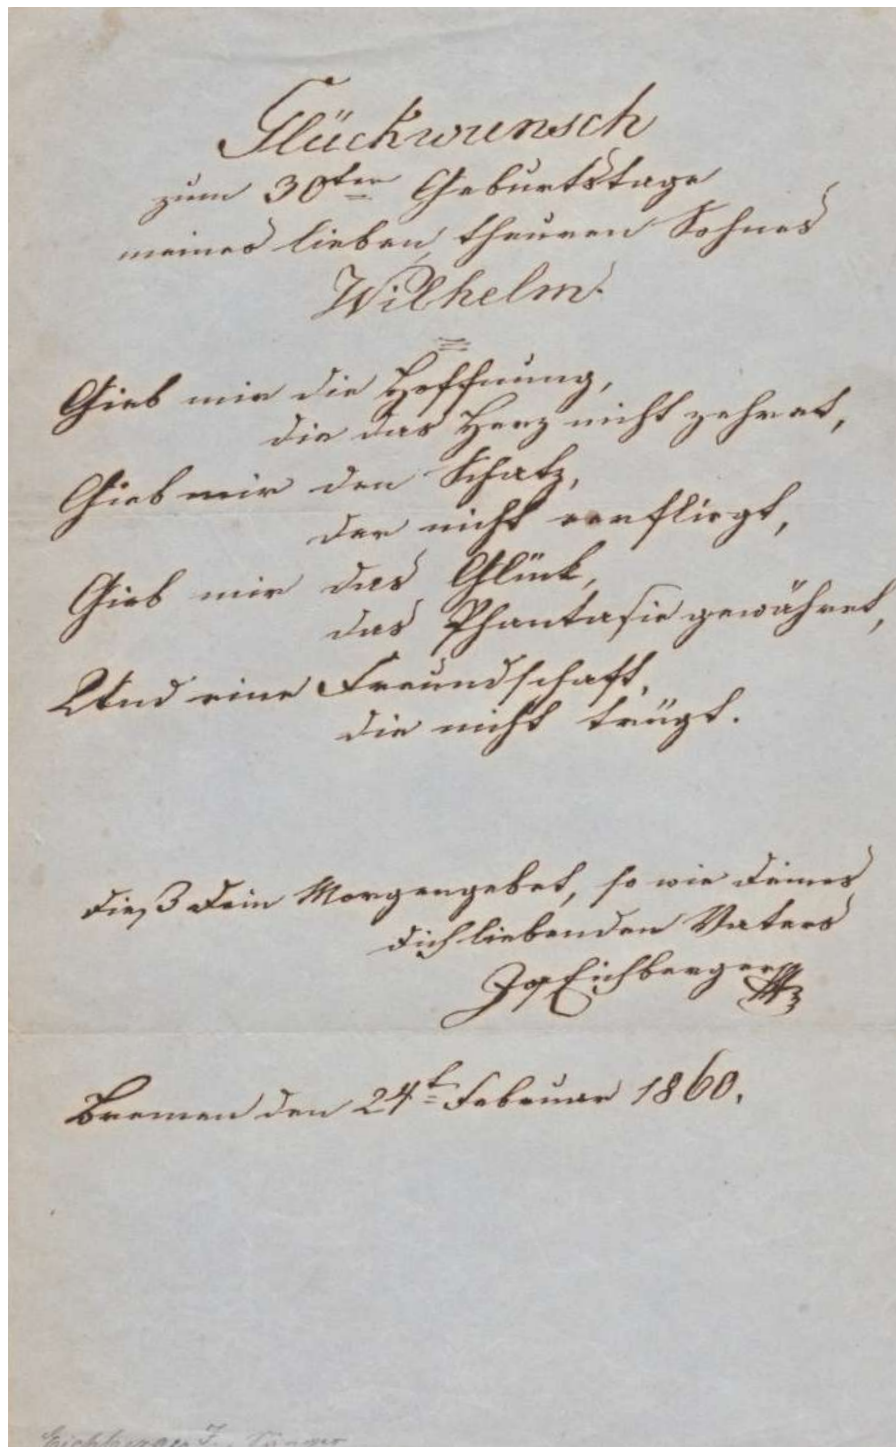 Glückwunsch
zum 30ten Geburtstage
meines lieben, theuren Sohnes
Wilhelm.
Gieb mir die Hoffnung,
die das Herz nicht zehret,
Gieb mir den Schatz,
der nicht verfliegt,
Gieb mir das Glück,
das Phantasie gewähret,
Und eine Freundschaft,
die nicht trügt.
Dieß Dein Morgengebet, so wie Deines
Dich liebenden Vaters
Eichberger
Bremen den 24t Februar 1860.
Eichberger J. Sänger